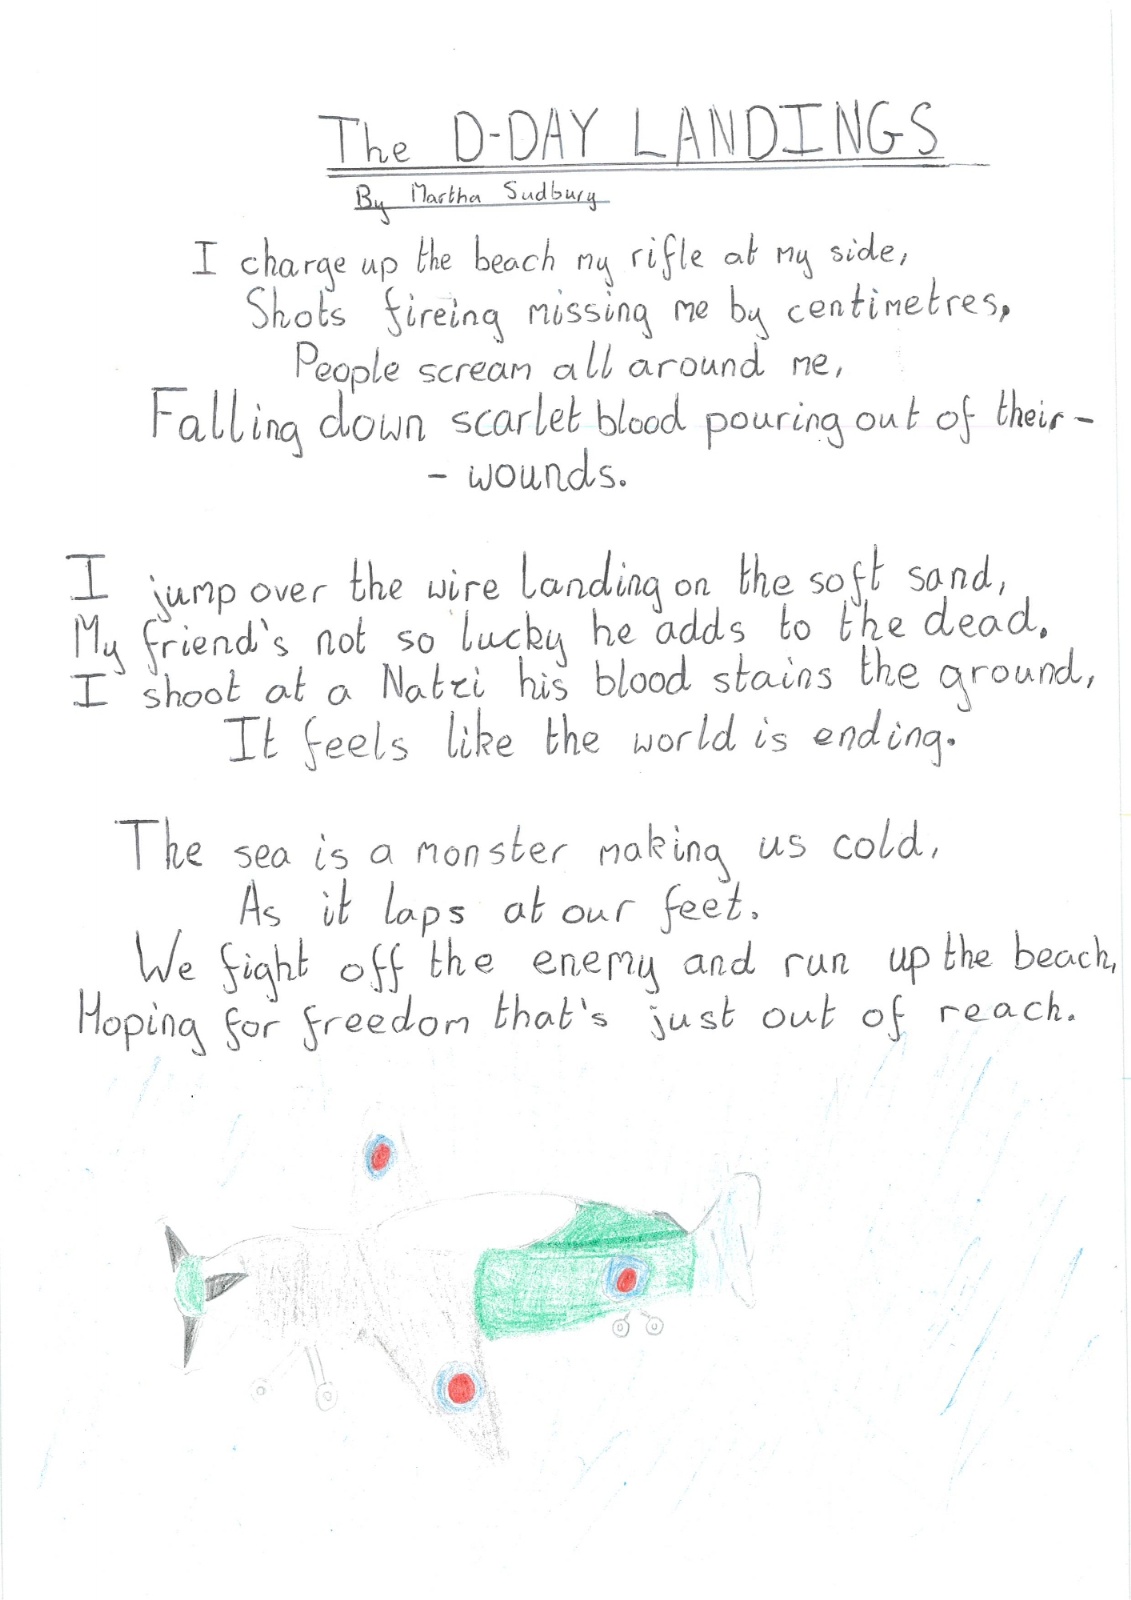 The D-DAY LANDINGS
By Martha Sudbury
I charge up the beach my rifle at my side,
Shots fireing missing me by centimetres,
People scream all around me,
Falling down scarlet blood pouring out of their -
- wounds.
I jump over the wire landing on the soft sand,
My friend's not so lucky he adds to the dead.
I shoot at a Natzi his blood stains the ground,
It feels like the world is ending.
The sea is a monster making us cold,
As it laps at our feet.
We fight off the enemy and run up the beach,
Hoping for freedom that's just out of reach.